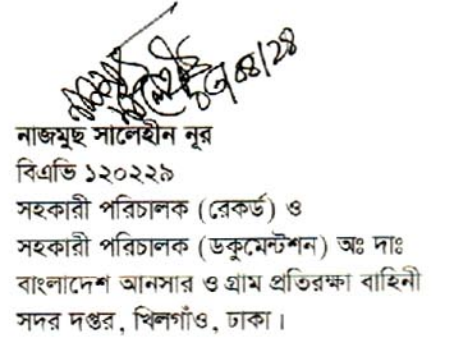 নাজমুছ সালেহীন নূর
বিএভি ১২০২২৯
সহকারী পরিচালক (রেকর্ড) ও
সহকারী পরিচালক (ডকুমেন্টশন) অঃ দাঃ
বাংলাদেশ আনসার ও গ্রাম প্রতিরক্ষা বাহিনী
সদর দপ্তর, খিলগাঁও, ঢাকা।